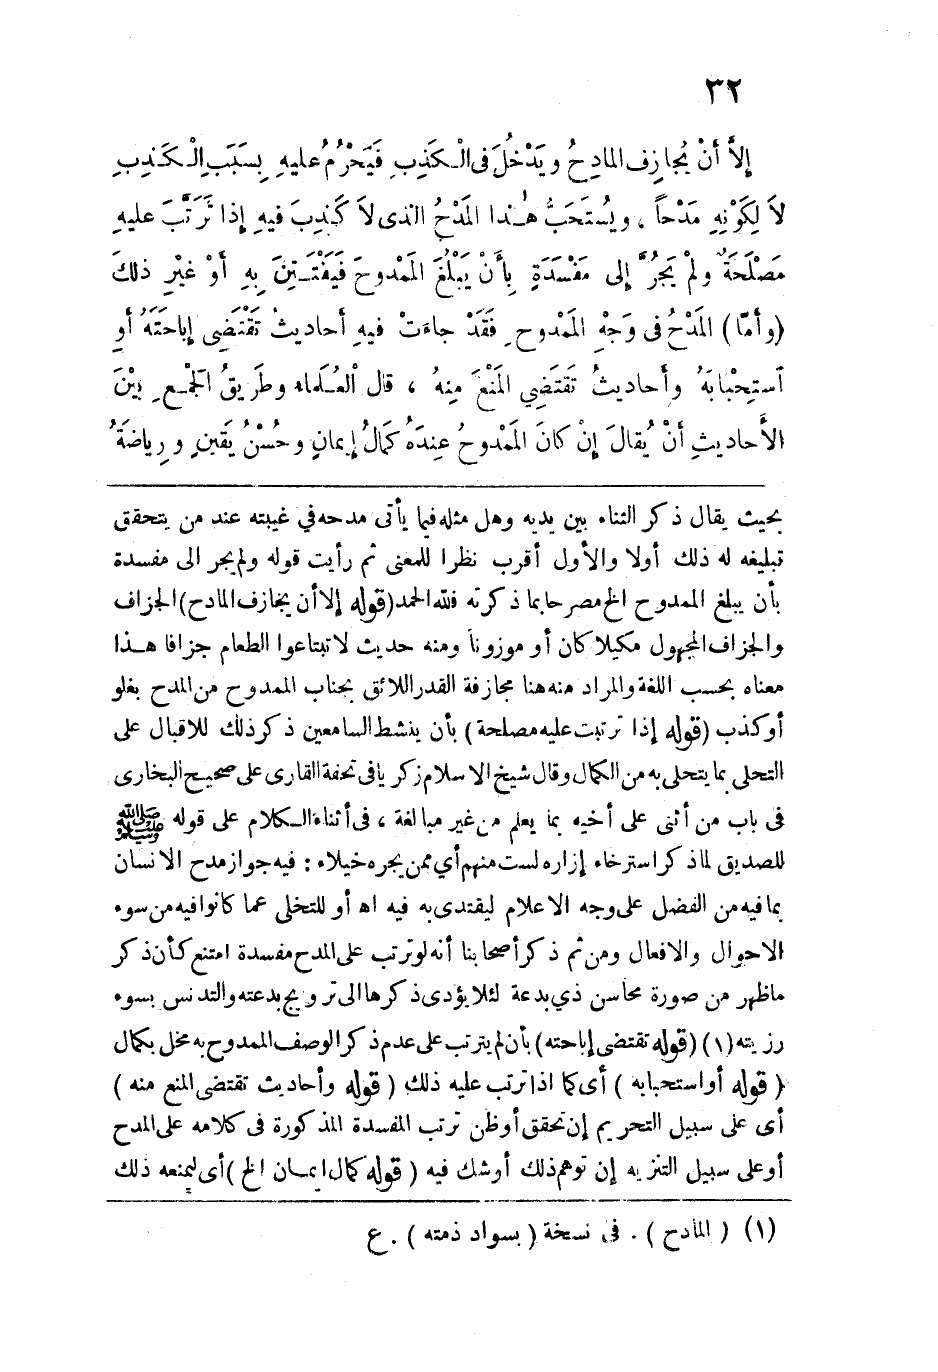 ٣٢
إلاَّ أنْ يُجازِفَ المادِحُ ويَدْخُلَ فى الْكَذِبِ فَيَحْرُمُ عليهِ بِسَبَبِ الْكَذِبِ
لاَ لِكَوْنِهِ مَدْحاً ، ويُسْتَحَبُّ هٰذا المَدْحُ الذى لاَ كَذِبَ فيهِ إذا تَرَتَّبَ عليهِ
مَصْلَحَةٌ ولمْ يَجُرَّ إلى مَفْسَدَةٍ بِأنْ يَبْلُغَ المَمْدوحَ فَيَفْتَـتِنَ بِهِ أوْ غَيْرِ ذلكَ
(وأمَّا) المَدْحُ فى وَجْهِ المَمْدوحِ فَقَدْ جاءَتْ فيهِ أحاديثُ تَقْتَضِى إباحَتَهُ أوِ
اَستِحْبَابَهُ وأحاديثُ تَقتَضِي المَنْعَ مِنهُ ، قال الْعُلَماء وطَريقُ الْجَمْعِ بيْنَ
الأَحاديثِ أنْ يُقالَ إنْ كانَ المَمْدوحُ عِندَهُ كَمالُ إيمانٍ وحُسْنُ يَقينٍ ورِياضَةُ
بحيث يقال ذكر الثناء بين يديه وهل مثله فيما يأتى مدحه في غيبته عند من يتحقق
تبليغه له ذلك أولا والأول أقرب نظرا للمعنى ثم رأيت قوله ولم يجر الى مفسدة
بأن يبلغ الممدوح الخ مصرحا بما ذكرته فلله الحمد (قوله إلا أن يجازف المادح) الجزاف
والجزاف المجهول مكيلا كان أو موزوناً ومنه حديث لا تبتاعوا الطعام جزافا هـذا
معناه بحسب اللغة والمراد منه هنا مجازفة القدر اللائق بجناب الممدوح من المدح بغلو
أوكذب (قوله إذا ترتبت عليه مصلحة) بأن ينشط السامعين ذكر ذلك للاقبال على
التحلى بما يتحلى به من الكمال وقال شيخ الاسلام زكريا فى تحفة القارى على صحيح البخارى
فى باب من أثنى على أخيه بما يعلم من غير مبالغة ، فى أثناء الـكلام على قوله ﷺ
للصديق لما ذكر استرخاء إزاره لست منهم أي ممن يجره خيلاء : فيه جواز مدح الانسان
بما فيه من الفضل على وجه الاعلام ليقتدى به فيه اه أو للتخلى عما كانوا فيه من سوء
الاحوال والافعال ومن ثم ذكر أصحابنا أنه لو ترتب على المدح مفسدة امتنع كأن ذكر
ماظهر من صورة محاسن ذي بدعة لئلا يؤدى ذكرها الى ترويج بدعته والتدنس بسوء
رزيته (١) (قوله تقتضى إباحته) بأن لم يترتب على عدم ذكر الوصف الممدوح به مخل بكمال
( قوله أو استحبابه ) أى كما اذا ترتب عليه ذلك ( قوله وأحاديث تقتضى المنع منه )
أى على سبيل التحريم إن تحقق أو ظن ترتب المفسدة المذكورة فى كلامه على المدح
أوعلى سبيل التنزيه إن توهم ذلك أوشك فيه ( قوله كمال ايمـان الخ ) أى ليمنعه ذلك
(١) ( المادح ) . فى نسخة ( بسواد ذمته ) . ع